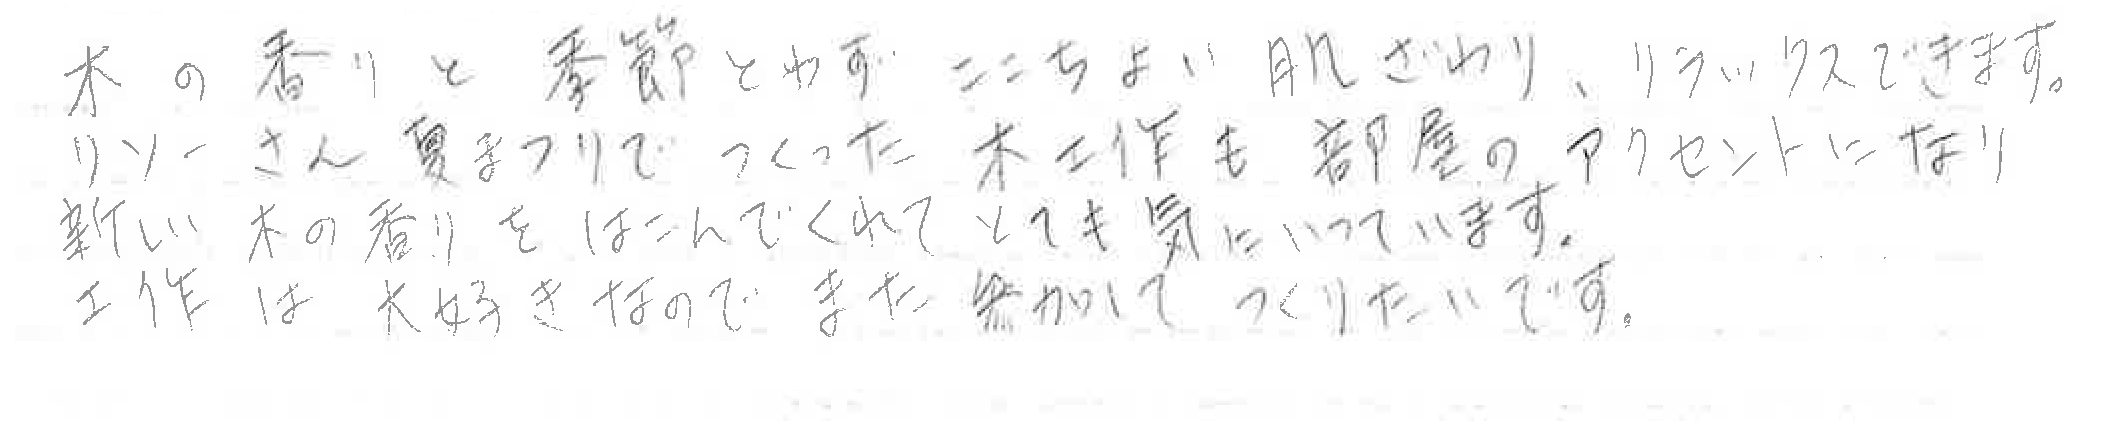 木の香りと季節とわず ここちよい肌ざわり、リラックスできます。
リソーさん夏まつりで つくった木工作も部屋のアクセントになり
新しい木の香りをはこんでくれてとても気にいっています。
工作は大好きなのでまた参加してつくりたいです。